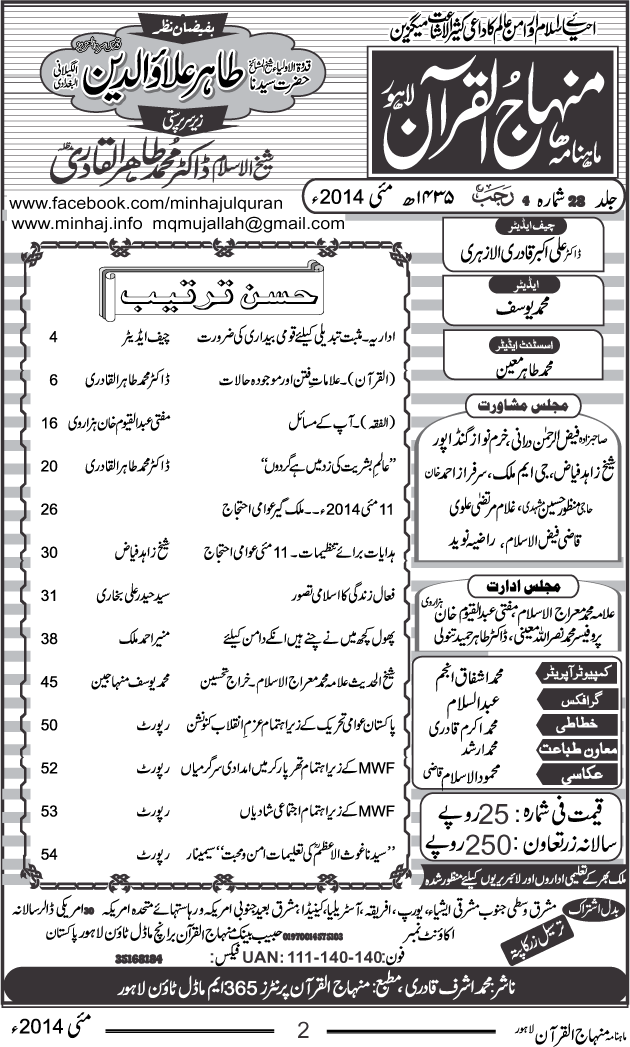 احیائے اسلام اور امن عالم کا داعی کثیر الاشاعت میگزین
ماہنامہ منہاج القرآن لاہور
بفیضان نظر
قدوۃ الاولیاء شیخ المشائخ حضرت سیدنا طاہر علاؤالدین الگیلانی البغدادی
زیر سرپرستی
شیخ الاسلام ڈاکٹر محمد طاہر القادری
جلد 28 شمارہ 4 رجب ۱۴۳۵ھ مئی 2014ء
www.facebook.com/minhajulquran
www.minhaj.info mqmujallah@gmail.com
چیف ایڈیٹر
ڈاکٹر علی اکبر قادری الازہری
ایڈیٹر
محمد یوسف
اسسٹنٹ ایڈیٹر
محمد طاہر معین
مجلس مشاورت
صاحبزادہ فیض الرحمن درانی، خرم نواز گنڈاپور
شیخ زاہد فیاض، جی ایم ملک، سرفراز احمد خان
حاجی منظور حسین مشہدی، غلام مرتضیٰ علوی
قاضی فیض الاسلام، راضیہ نوید
مجلس ادارت
علامہ محمد معراج الاسلام، مفتی عبدالقیوم خان ہزاروی
پروفیسر محمد نصراللہ معینی، ڈاکٹر طاہر حمید تنولی
کمپیوٹر آپریٹر محمد اشفاق انجم
گرافکس عبدالسلام
خطاطی محمد اکرم قادری
معاون طباعت محمد ارشد
عکاسی محمود الاسلام قاضی
قیمت فی شمارہ: 25 روپے
سالانہ زرتعاون: 250 روپے
ملک بھر کے تعلیمی اداروں اور لائبریریوں کیلئے منظور شدہ
حسن ترتیب
اداریہ۔ مثبت تبدیلی کیلئے قومی بیداری کی ضرورت چیف ایڈیٹر 4
(القرآن)۔ علاماتِ فتن اور موجودہ حالات ڈاکٹر محمد طاہر القادری 6
(الفقہ)۔ آپ کے مسائل مفتی عبدالقیوم خان ہزاروی 16
’’عالمِ بشریت کی زد میں ہے گردوں‘‘ ڈاکٹر محمد طاہر القادری 20
11 مئی 2014ء۔۔ ملک گیر عوامی احتجاج 26
ہدایات برائے تنظیمات۔ 11 مئی عوامی احتجاج شیخ زاہد فیاض 30
فعال زندگی کا اسلامی تصور سید حیدر علی بخاری 31
پھول کچھ میں نے چنے ہیں انکے دامن کیلئے منیر احمد ملک 38
شیخ الحدیث علامہ محمد معراج الاسلام۔ خراج تحسین محمد یوسف منہاجین 45
پاکستان عوامی تحریک کے زیراہتمام عزمِ انقلاب کنونشن رپورٹ 50
MWF کے زیراہتمام تھرپارکر میں امدادی سرگرمیاں رپورٹ 52
MWF کے زیراہتمام اجتماعی شادیاں رپورٹ 53
’’سیدنا غوث الاعظمؓ کی تعلیمات امن و محبت‘‘ سیمینار رپورٹ 54
بدل اشتراک مشرق وسطیٰ جنوب مشرقی ایشیاء، یورپ، افریقہ، آسٹریلیا، کینیڈا، مشرق بعید جنوبی امریکہ و ریاستہائے متحدہ امریکہ 30 امریکی ڈالر سالانہ
ترسیل زر کا پتہ اکاؤنٹ نمبر 01970014575103 حبیب بینک منہاج القرآن برانچ ماڈل ٹاؤن لاہور پاکستان
فون: UAN: 111-140-140 فیکس: 35168184
ناشر: محمد اشرف قادری، مطبع: منہاج القرآن پرنٹرز 365 ایم ماڈل ٹاؤن لاہور
ماہنامہ منہاج القرآن لاہور 2 مئی 2014ء